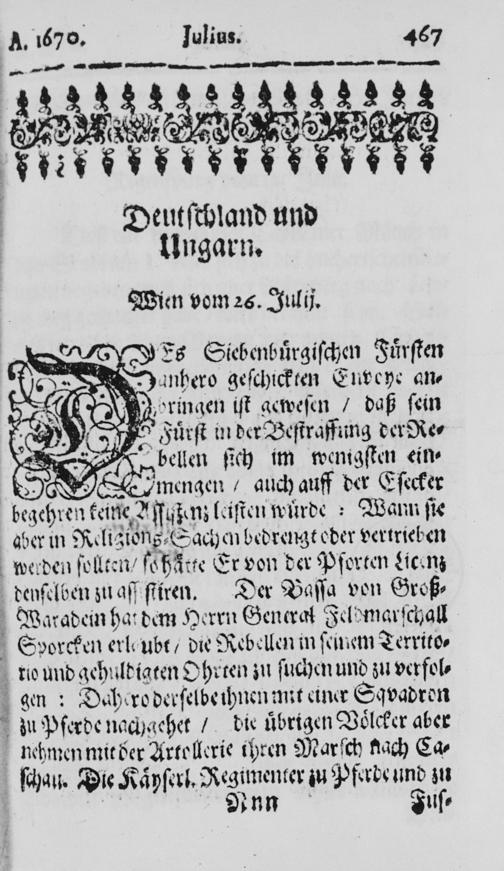 A. 1670. Julius. 467
Deutschland und
Ungarn.
Wien vom 26. Julij.
DEs Siebenbürgischen Fürsten
anhero geschickten Envoye an-
bringen ist gewesen / daß sein
Fürst in der Bestraffung der Re-
bellen sich im wenigsten ein-
mengen / auch auff der Esecker
begehren keine Assistenz leisten würde : Wann sie
aber in Religions-Sachen bedrengt oder vertrieben
werden sollten / so hätte Er von der Pforten Licenz
denselben zu assistiren. Der Bassa von Groß-
Waradein hat dem Herrn General Feldmarschall
Sporcken erlaubt / die Rebellen in seinem Territo-
rio und gehuldigten Ohrten zu suchen und zu verfol-
gen : Dahero derselbe ihnen mit einer Sqvadron
zu Pferde nachgehet / die übrigen Völcker aber
nehmen mit der Artollerie ihren Marsch nach Ca-
schau. Die Käyserl. Regimenter zu Pferde und zu
Nnn Fus-